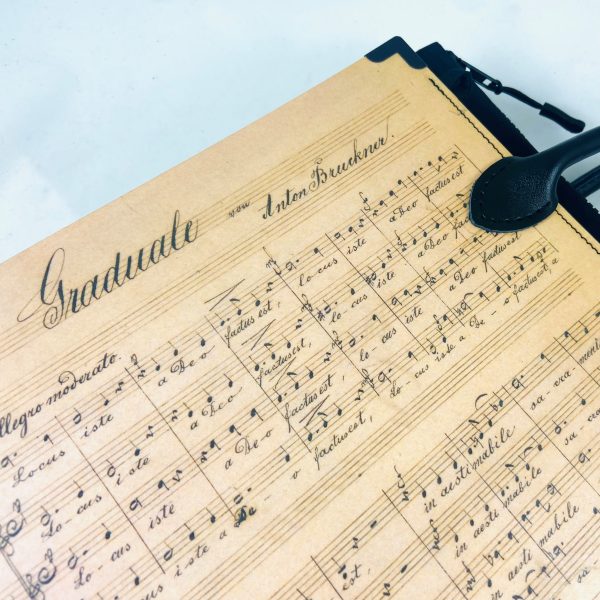 Graduale
von Anton Bruckner.
Allegro moderato.
Locus iste a Deo factus est, locus iste a Deo factus est
Locus iste a Deo factus est, locus iste a Deo factus est
Locus iste a Deo factus est, locus iste a Deo factus est
Lo-cus iste a De-o factus est, lo-cus iste a De-o factus est, a
est, in aestimabile sa-cramen
in aestimabile sa-cra
in aestimabile sa